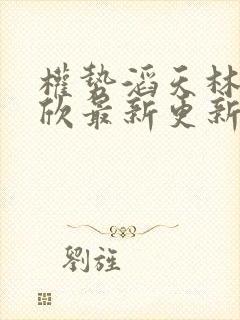 權勢滔天林
欣最新更新
劉旌